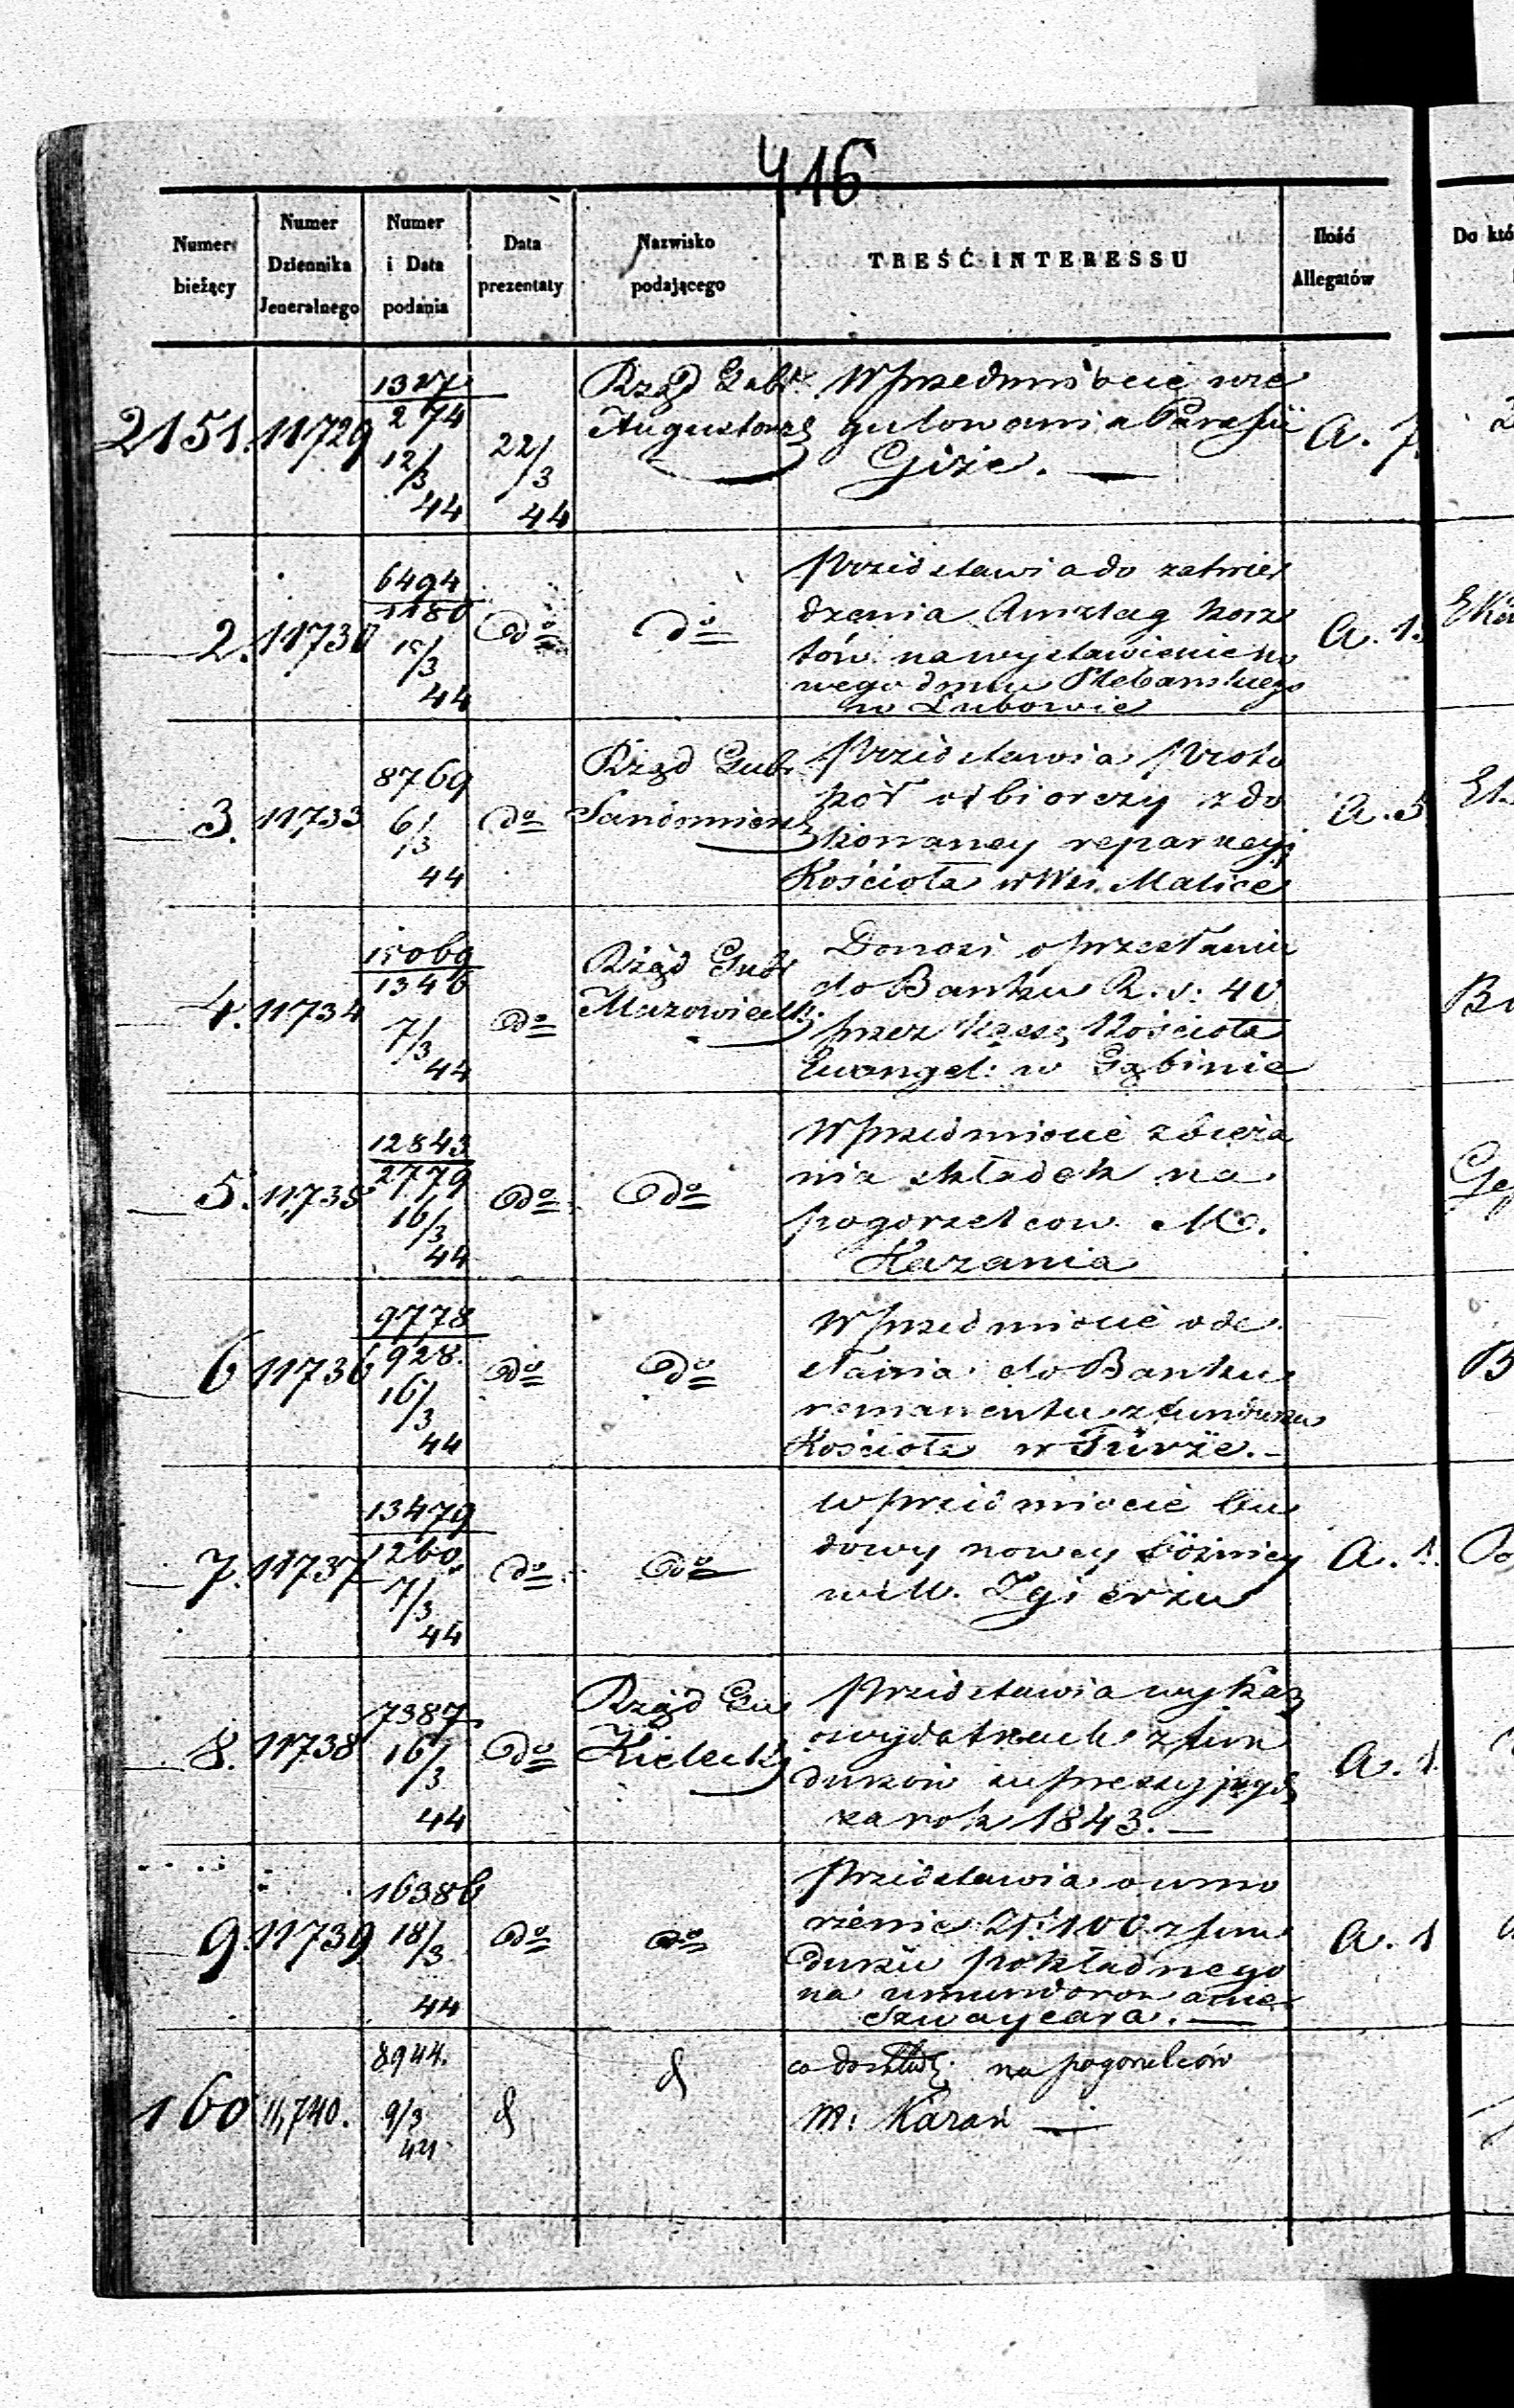 416
Numer bieżący
Numer Dziennika Jeneralnego
Numer i Data podania
Data prezentaty
Nazwisko podającego
TREŚĆ INTERESSU
Ilość Allegatów
Do któ
2151. 11729 1327 274 12/3 44 22/3 44
Rząd Gub
Augustows
W przedmiocie ure
gulowania Parafii
Giże. —
A. 7.
2. 11730 6494 1180 15/3 44 do do
Przedstawia do zatwier
dzenia Anszlag kosz
tów na wystawienie no
wego domu Plebanskiego
w Lubowie
A. 1.
3. 11733 8769 6/3 44 do
Rząd Gub
Sandomiers
Przedstawia Proto
kół odbiorczy z do
konaney reparacyi
Kościoła w Wsi Malice
A. 5
4. 11734 15069 1346 7/3 44 do
Rząd Gub
Mazowiecki
Donosi o przesłaniu
do Banku R. s: 40
przez Kassę Kościoła
Ewangel: w Gąbinie
5. 11,735 12843 2779 16/3 44 do do
W przedmiocie zbiera
nia składek na
pogorzelcow M.
Kazania
6 11736 9778 928. 16/3 44 do do
W przedmiocie ode
słania do Banku
remanentu z funduszu
Kościoła w Turze. —
7. 11737 13479 1260. 7/3 44 do do
W przedmiocie bu
dowy nowey Bóżnicy
w M. Zgierzu
A. 1.
8. 11738 7387 16/3 44 do
Rząd Gu
Kielecki
Przedstawia wykaz
o wydatkach z fun
duszów supressyjnych
za rok 1843. —
A. 1
9. 11739 16386 18/3 44 do do
Przedstawia o umo
rzenie Zł: 100 z fun
duszu pokładnego
na umundorowanie
Szwaycara. —
A. 1
160 11,740. 8944. 9/3 44
co do składk: na pogorzelców
m: Kazań —